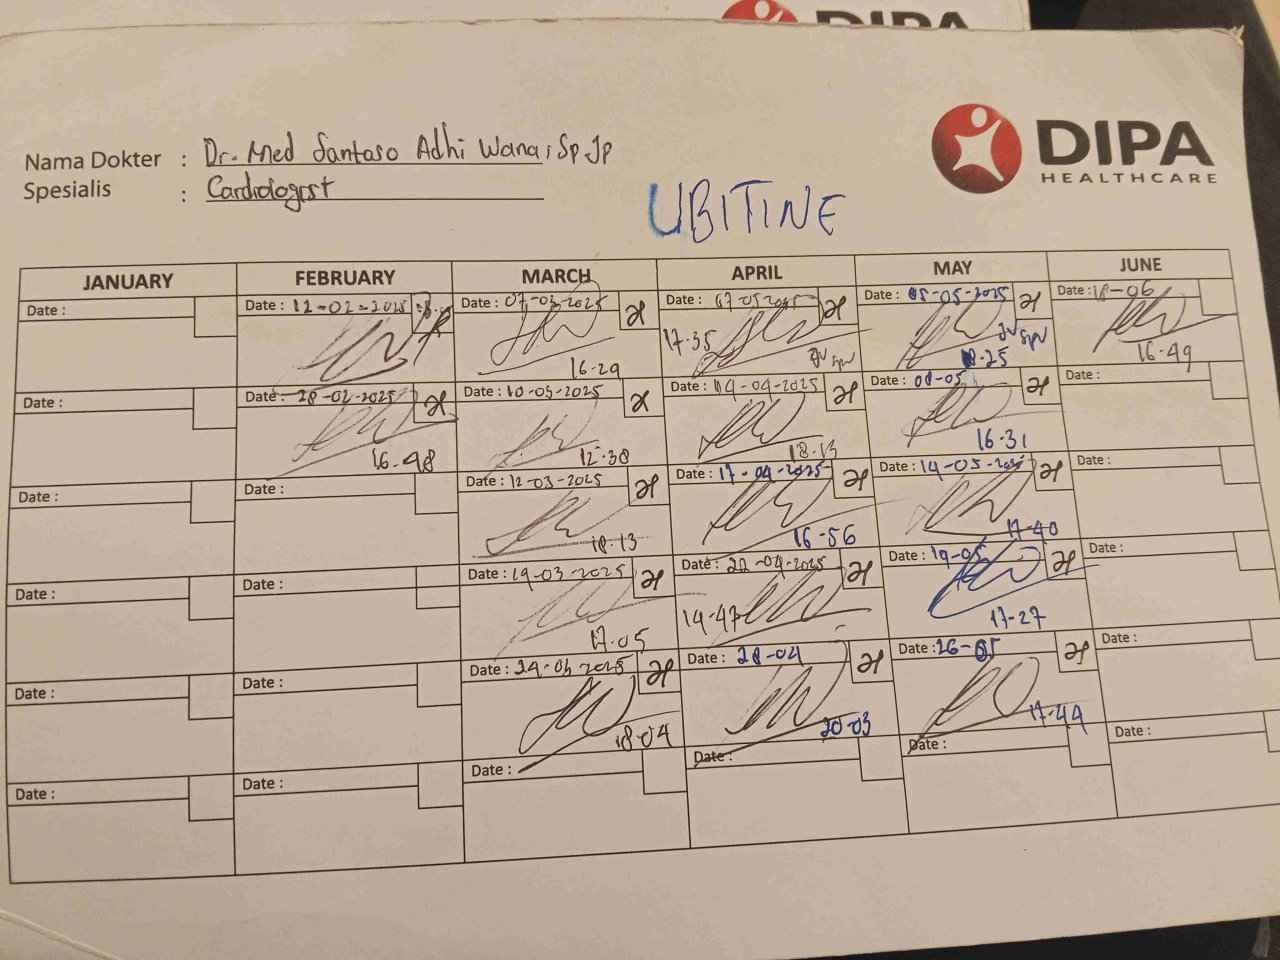 DIPA
Nama Dokter : Dr. Med Santoso Adhi Wana, Sp Jp
Spesialis : Cardiologist
DIPA
HEALTHCARE
UBITINE
JANUARY FEBRUARY MARCH APRIL MAY JUNE
Date : Date : 12-02-2025 Date : 07-03-2025 Date : 07-05-2025 Date : 05-05-2025 Date : 18-06
16.29 17-35 18-25 16-49
Date : Date : 28-02-2025 Date : 10-03-2025 Date : 04-04-2025 Date : 08-05 Date :
16.48 12.38 18.13 16.31
Date : Date : Date : 12-03-2025 Date : 17-04-2025 Date : 14-05-2025 Date :
18.13 16-56 17-40
Date : Date : Date : 19-03-2025 Date : 22-04-2025 Date : 19-05 Date :
17.05 14-47 17-27
Date : Date : Date : 24-03-2025 Date : 28-04 Date : 26-05 Date :
18-04 20-03 17-44
Date : Date : Date : Date : Date : Date :